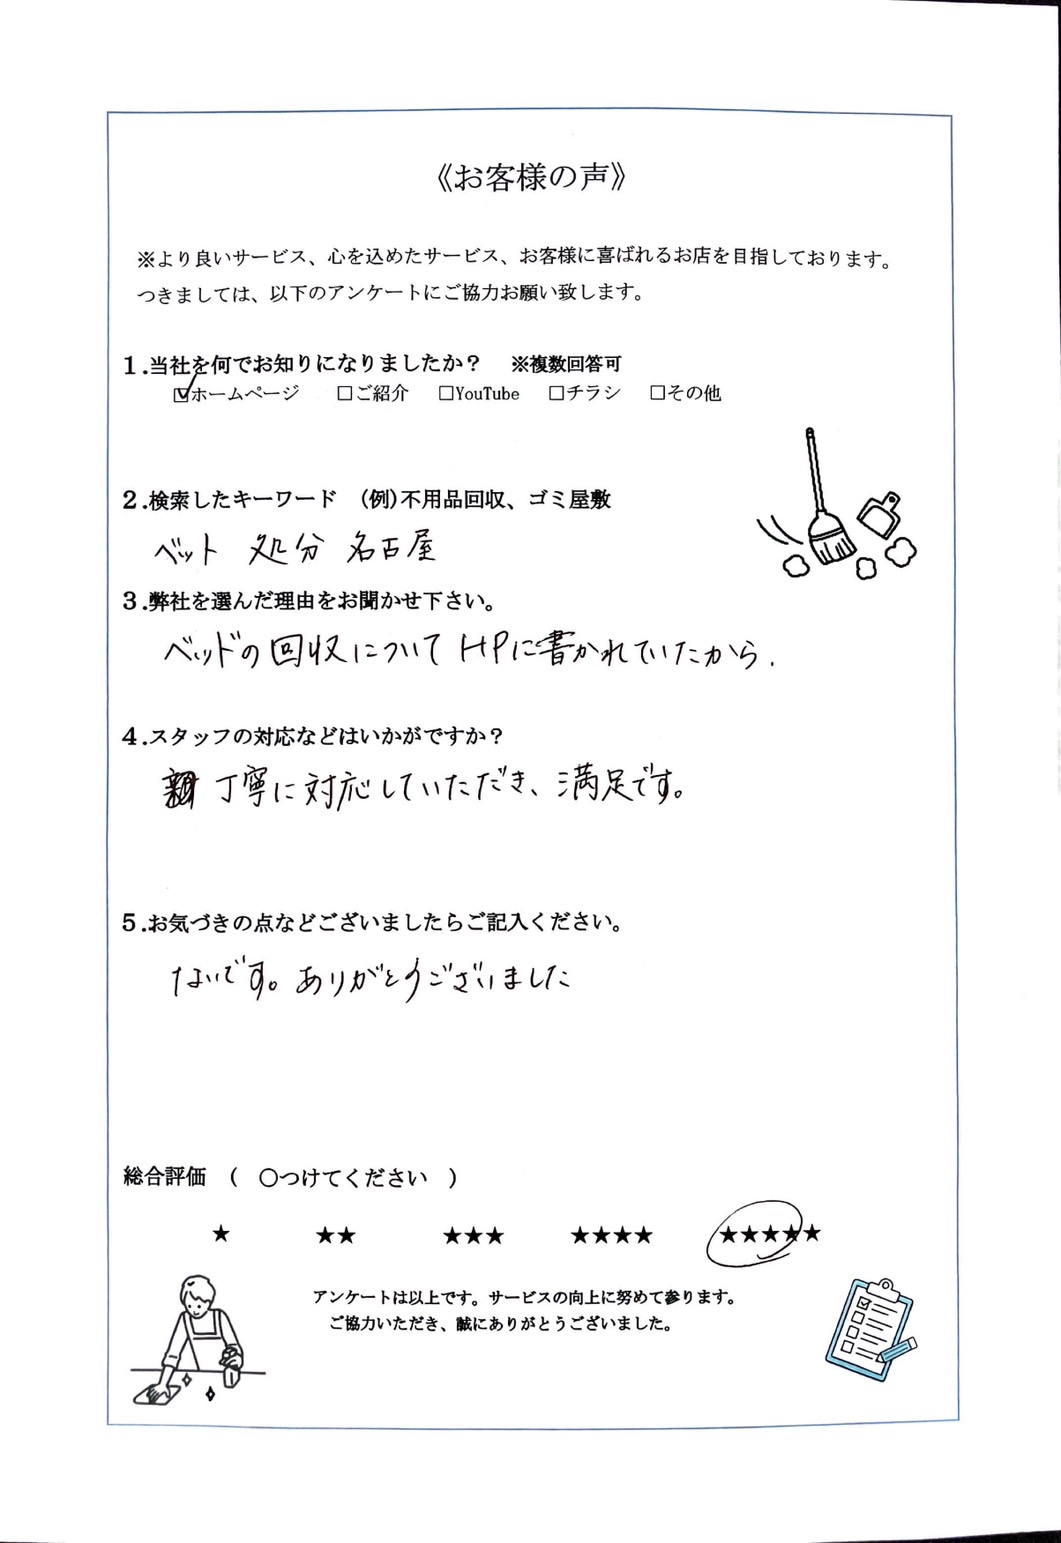 《お客様の声》
※より良いサービス、心を込めたサービス、お客様に喜ばれるお店を目指しております。
つきましては、以下のアンケートにご協力お願い致します。
1.当社を何でお知りになりましたか？　※複数回答可
☑ホームページ　□ご紹介　□YouTube　□チラシ　□その他
2.検索したキーワード　(例)不用品回収、ゴミ屋敷
ベット　処分　名古屋
3.弊社を選んだ理由をお聞かせ下さい。
ベッドの回収についてHPに書かれていたから.
4.スタッフの対応などはいかがですか？
丁寧に対応していただき、満足です。
5.お気づきの点などございましたらご記入ください。
ないです。ありがとうございました
総合評価　(　○つけてください　)
★　★★　★★★　★★★★　★★★★★
アンケートは以上です。サービスの向上に努めて参ります。
ご協力いただき、誠にありがとうございました。